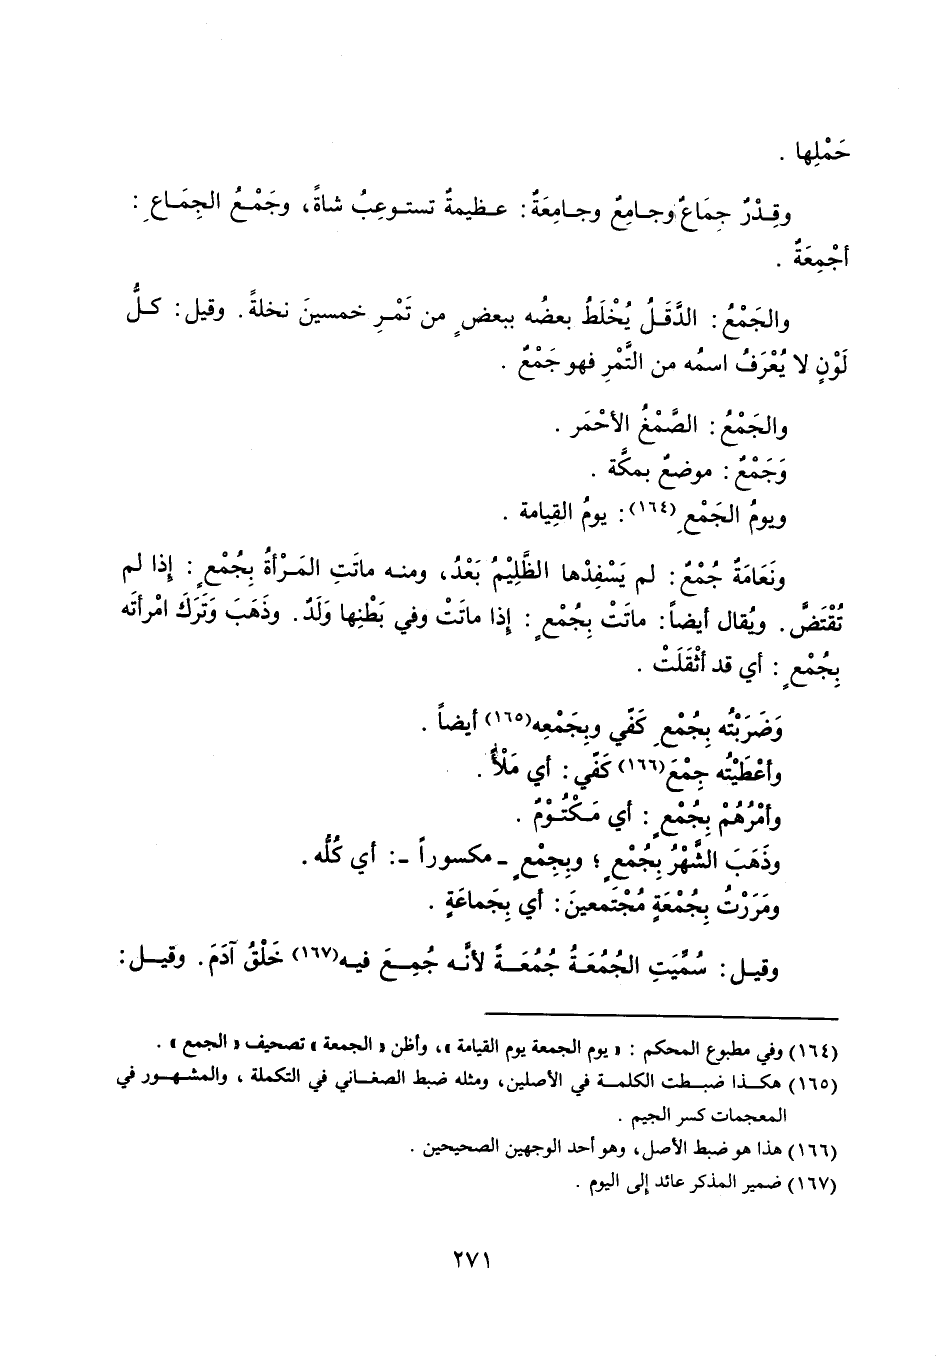 حَمْلِها .
وقِدْرٌ جِمَاعٌ وجامِعٌ وجامِعَةٌ : عظيمةٌ تستوعِبُ شاةً ، وجَمْعُ الجِمَاعِ :
أجْمِعَةٌ .
والجَمْعُ : الدَّقَلُ يُخْلَطُ بعضُه ببعضٍ من تَمْرِ خمسينَ نخلةً . وقيل : كلُّ
لَوْنٍ لا يُعْرَفُ اسمُه من التَّمْرِ فهو جَمْعٌ .
والجَمْعُ : الصَّمْغُ الأحْمَر .
وَجَمْعٌ : موضعٌ بمكَّة .
ويومُ الجَمْعِ(١٦٤) : يومُ القِيامة .
ونَعَامَةٌ جُمْعٌ : لم يَسْفِدْها الظَّلِيْمُ بَعْدُ ، ومنه ماتَتِ المَرْأةُ بِجُمْعٍ : إذا لم
تُقْتَضَّ . ويُقال أيضاً : ماتَتْ بِجُمْعٍ : إذا ماتَتْ وفي بَطْنِها وَلَدٌ . وذَهَبَ وَتَرَكَ امْرأتَه
بِجُمْعٍ : أي قد أثْقَلَتْ .
وَضَرَبْتُه بِجُمْعِ كَفِّي وبِجَمْعِه(١٦٥) أيضاً .
وأعْطَيْتُه جِمْعَ(١٦٦) كَفِّي : أي مَلْأَ .
وأمْرُهُمْ بِجُمْعٍ : أي مَكْتُوْمٌ .
وذَهَبَ الشَّهْرُ بِجُمْعٍ ؛ وبِجِمْعٍ ـ مكسوراً ـ : أي كُلُّه .
ومَرَرْتُ بِجُمْعَةٍ مُجْتَمعينَ : أي بِجَماعَةٍ .
وقيل : سُمِّيَتِ الجُمُعَةُ جُمُعَةً لأنَّه جُمِعَ فيه(١٦٧) خَلْقُ آدَمَ . وقيل :
(١٦٤) وفي مطبوع المحكم : « يوم الجمعة يوم القيامة » ، وأظن « الجمعة » تصحيف « الجمع » .
(١٦٥) هكذا ضبطت الكلمة في الأصلين ، ومثله ضبط الصغاني في التكملة ، والمشهور في
المعجمات كسر الجيم .
(١٦٦) هذا هو ضبط الأصل ، وهو أحد الوجهين الصحيحين .
(١٦٧) ضمير المذكر عائد إلى اليوم .
٢٧١